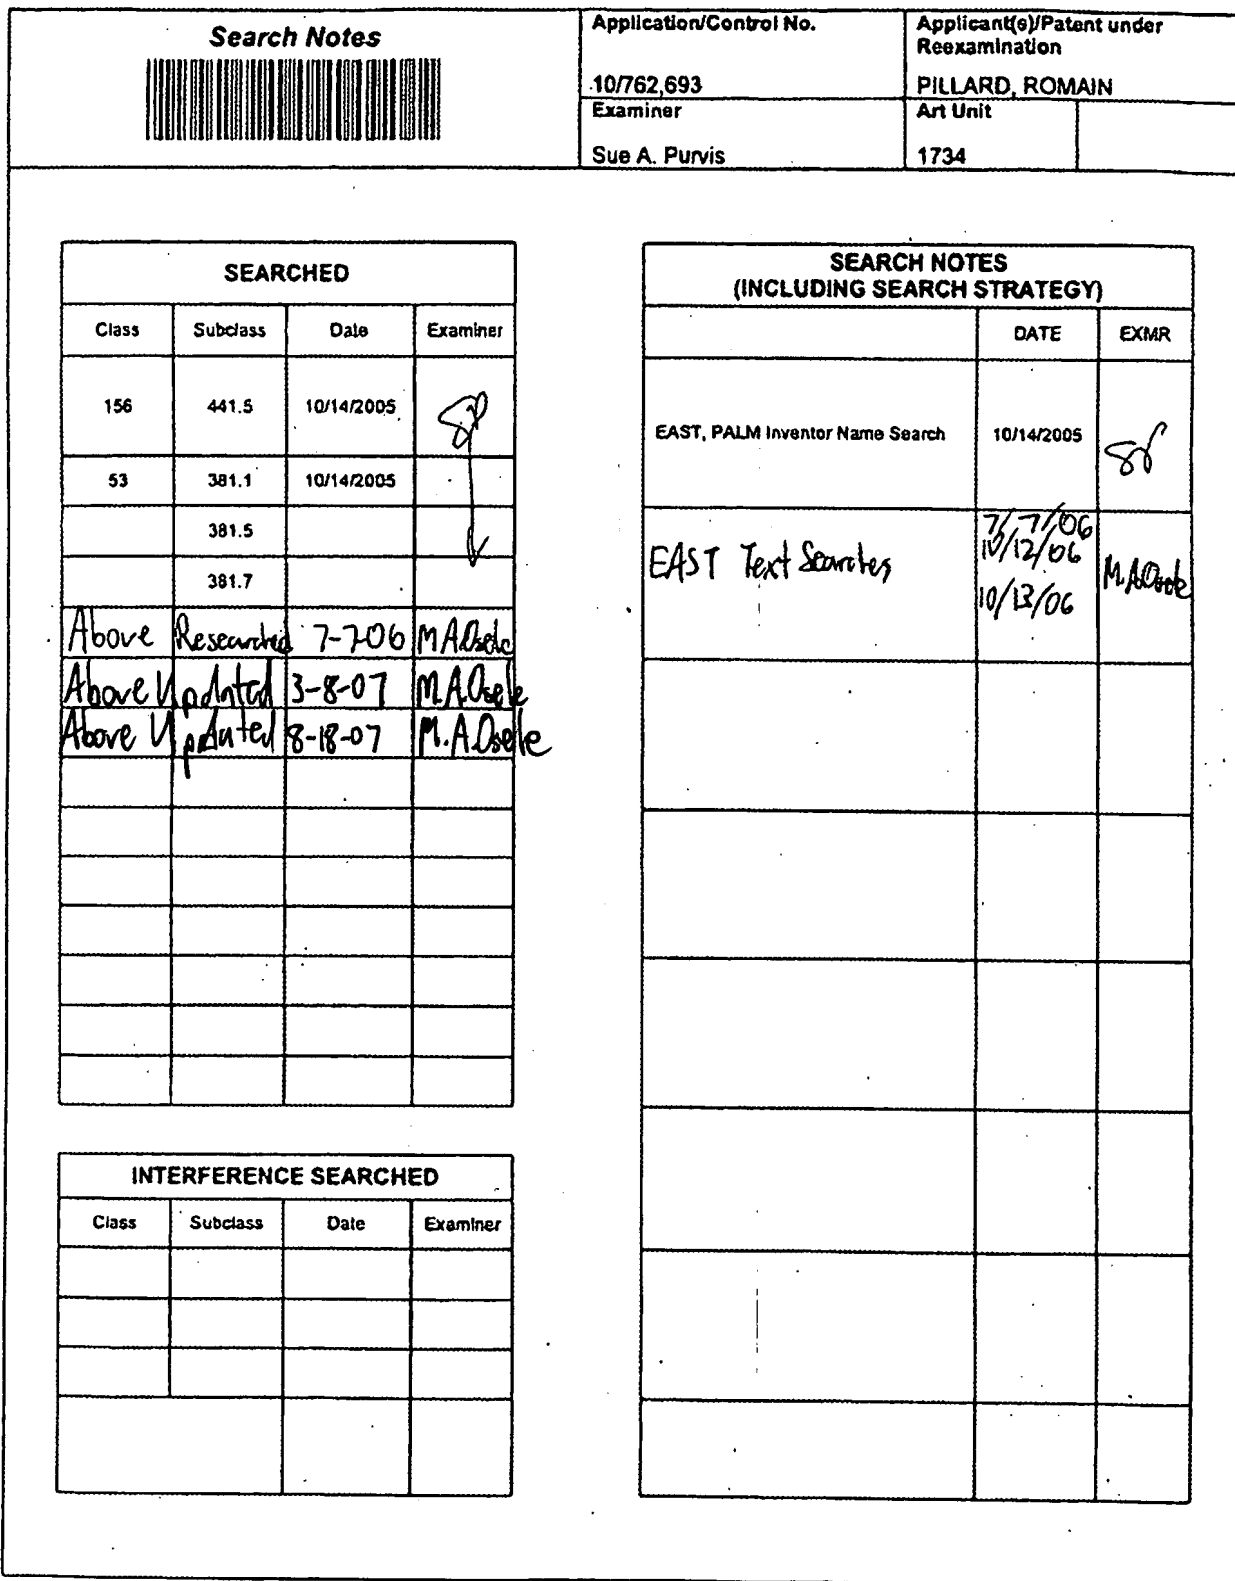 Search Notes
Application/Control No.
10/762,693
Applicant(s)/Patent under
Reexamination
PILLARD, ROMAIN
Examiner
Sue A. Purvis
Art Unit
1734
SEARCHED
Class Subclass Date Examiner
156 441.5 10/14/2005 SP
53 381.1 10/14/2005
381.5
381.7
Above Researched 7-7-06 M.A.Osele
Above Updated 3-8-07 M.A.Osele
Above Updated 8-18-07 M.A.Osele
INTERFERENCE SEARCHED
Class Subclass Date Examiner
SEARCH NOTES
(INCLUDING SEARCH STRATEGY)
DATE EXMR
EAST, PALM Inventor Name Search 10/14/2005 SP
EAST Text Searches 7/7/06
10/12/06
10/13/06 M.A.Osele